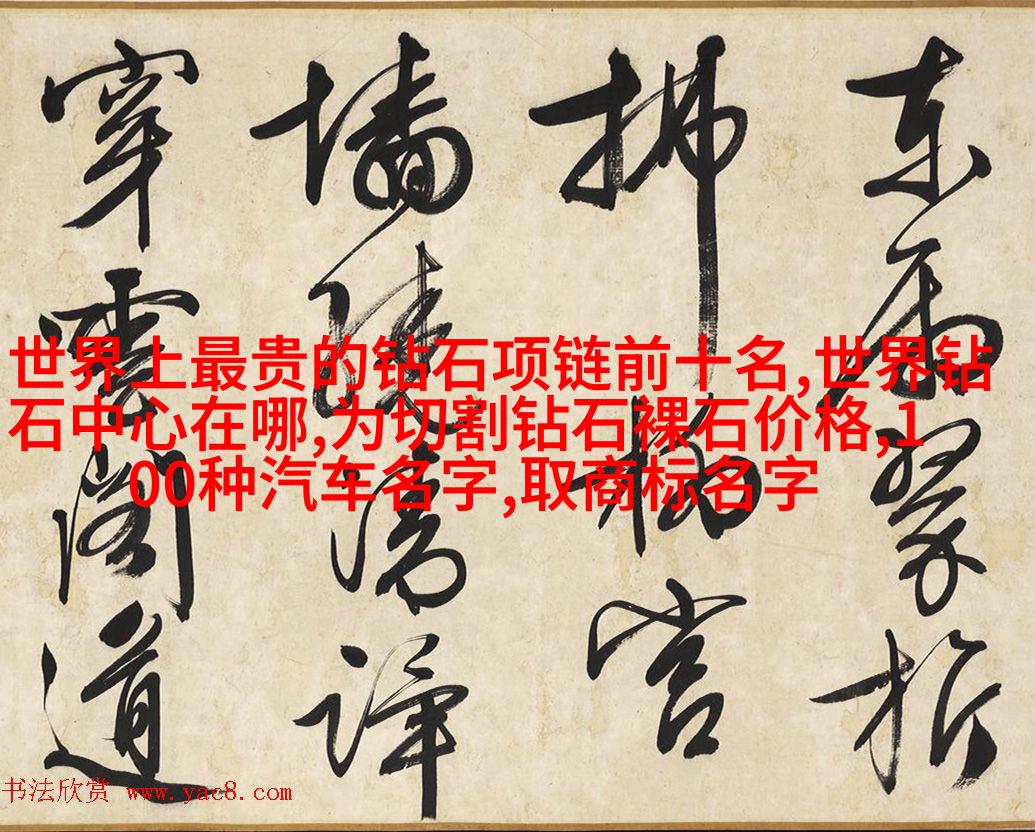 世界上最贵的钻石项链前十名,世界钻
石中心在哪,为切割钻石裸石价格,1
00种汽车名字,取商标名字
東 翠
拂 宫
墙
穿雲閣道
书法欣赏 www.yac8.com